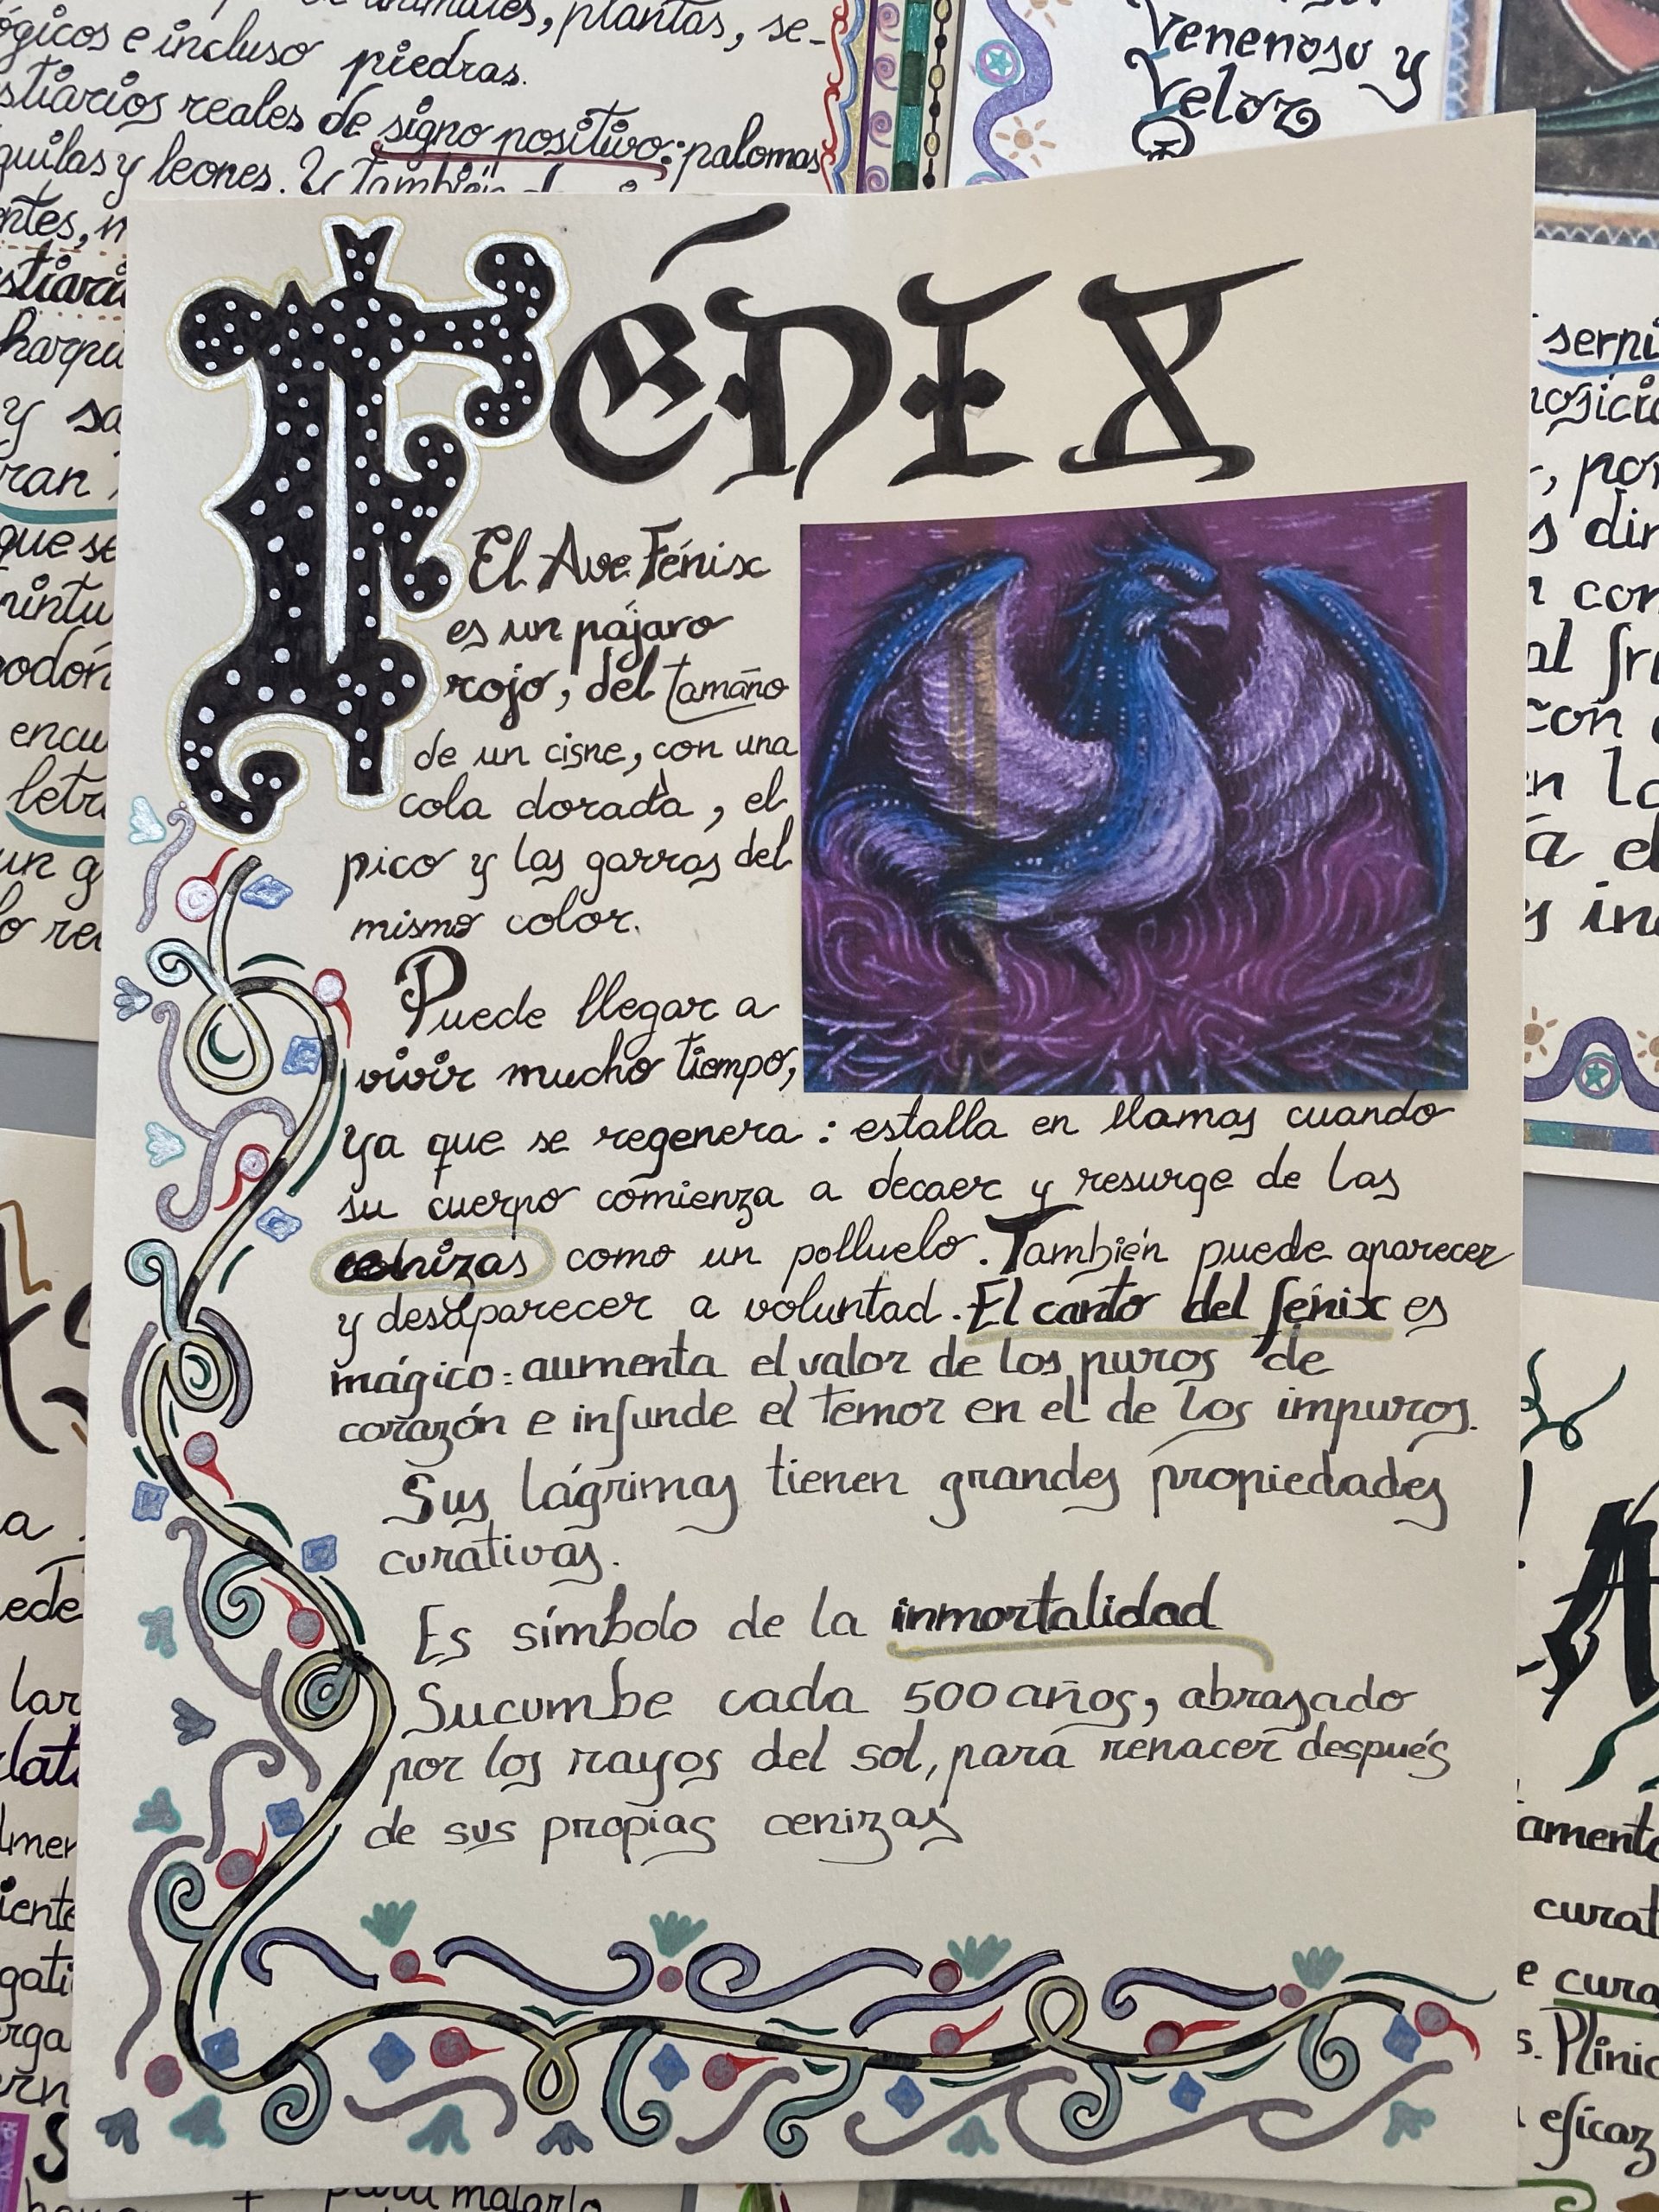 FÉNIX
El Ave Fénix
es un pájaro
rojo, del tamaño
de un cisne, con una
cola dorada, el
pico y las garras del
mismo color.
Puede llegar a
vivir mucho tiempo,
ya que se regenera: estalla en llamas cuando
su cuerpo comienza a decaer y resurge de las
cenizas como un polluelo. También puede aparecer
y desaparecer a voluntad. El canto del fénix es
mágico: aumenta el valor de los puros de
corazón e infunde el temor en el de los impuros.
Sus lágrimas tienen grandes propiedades
curativas.
Es símbolo de la inmortalidad
Sucumbe cada 500 años, abrasado
por los rayos del sol, para renacer después
de sus propias cenizas
animales, plantas, se-
ógicos e incluso piedras.
stiarios reales de signo positivo: palomas
quilas y leones. Y también
Venenoso y
Veloz
y
que se
encu
letr
un g
lo re
serpi
, por
con
en
el
es
lar
curat
e cura
s. Plinio
eficaz
para matarlo